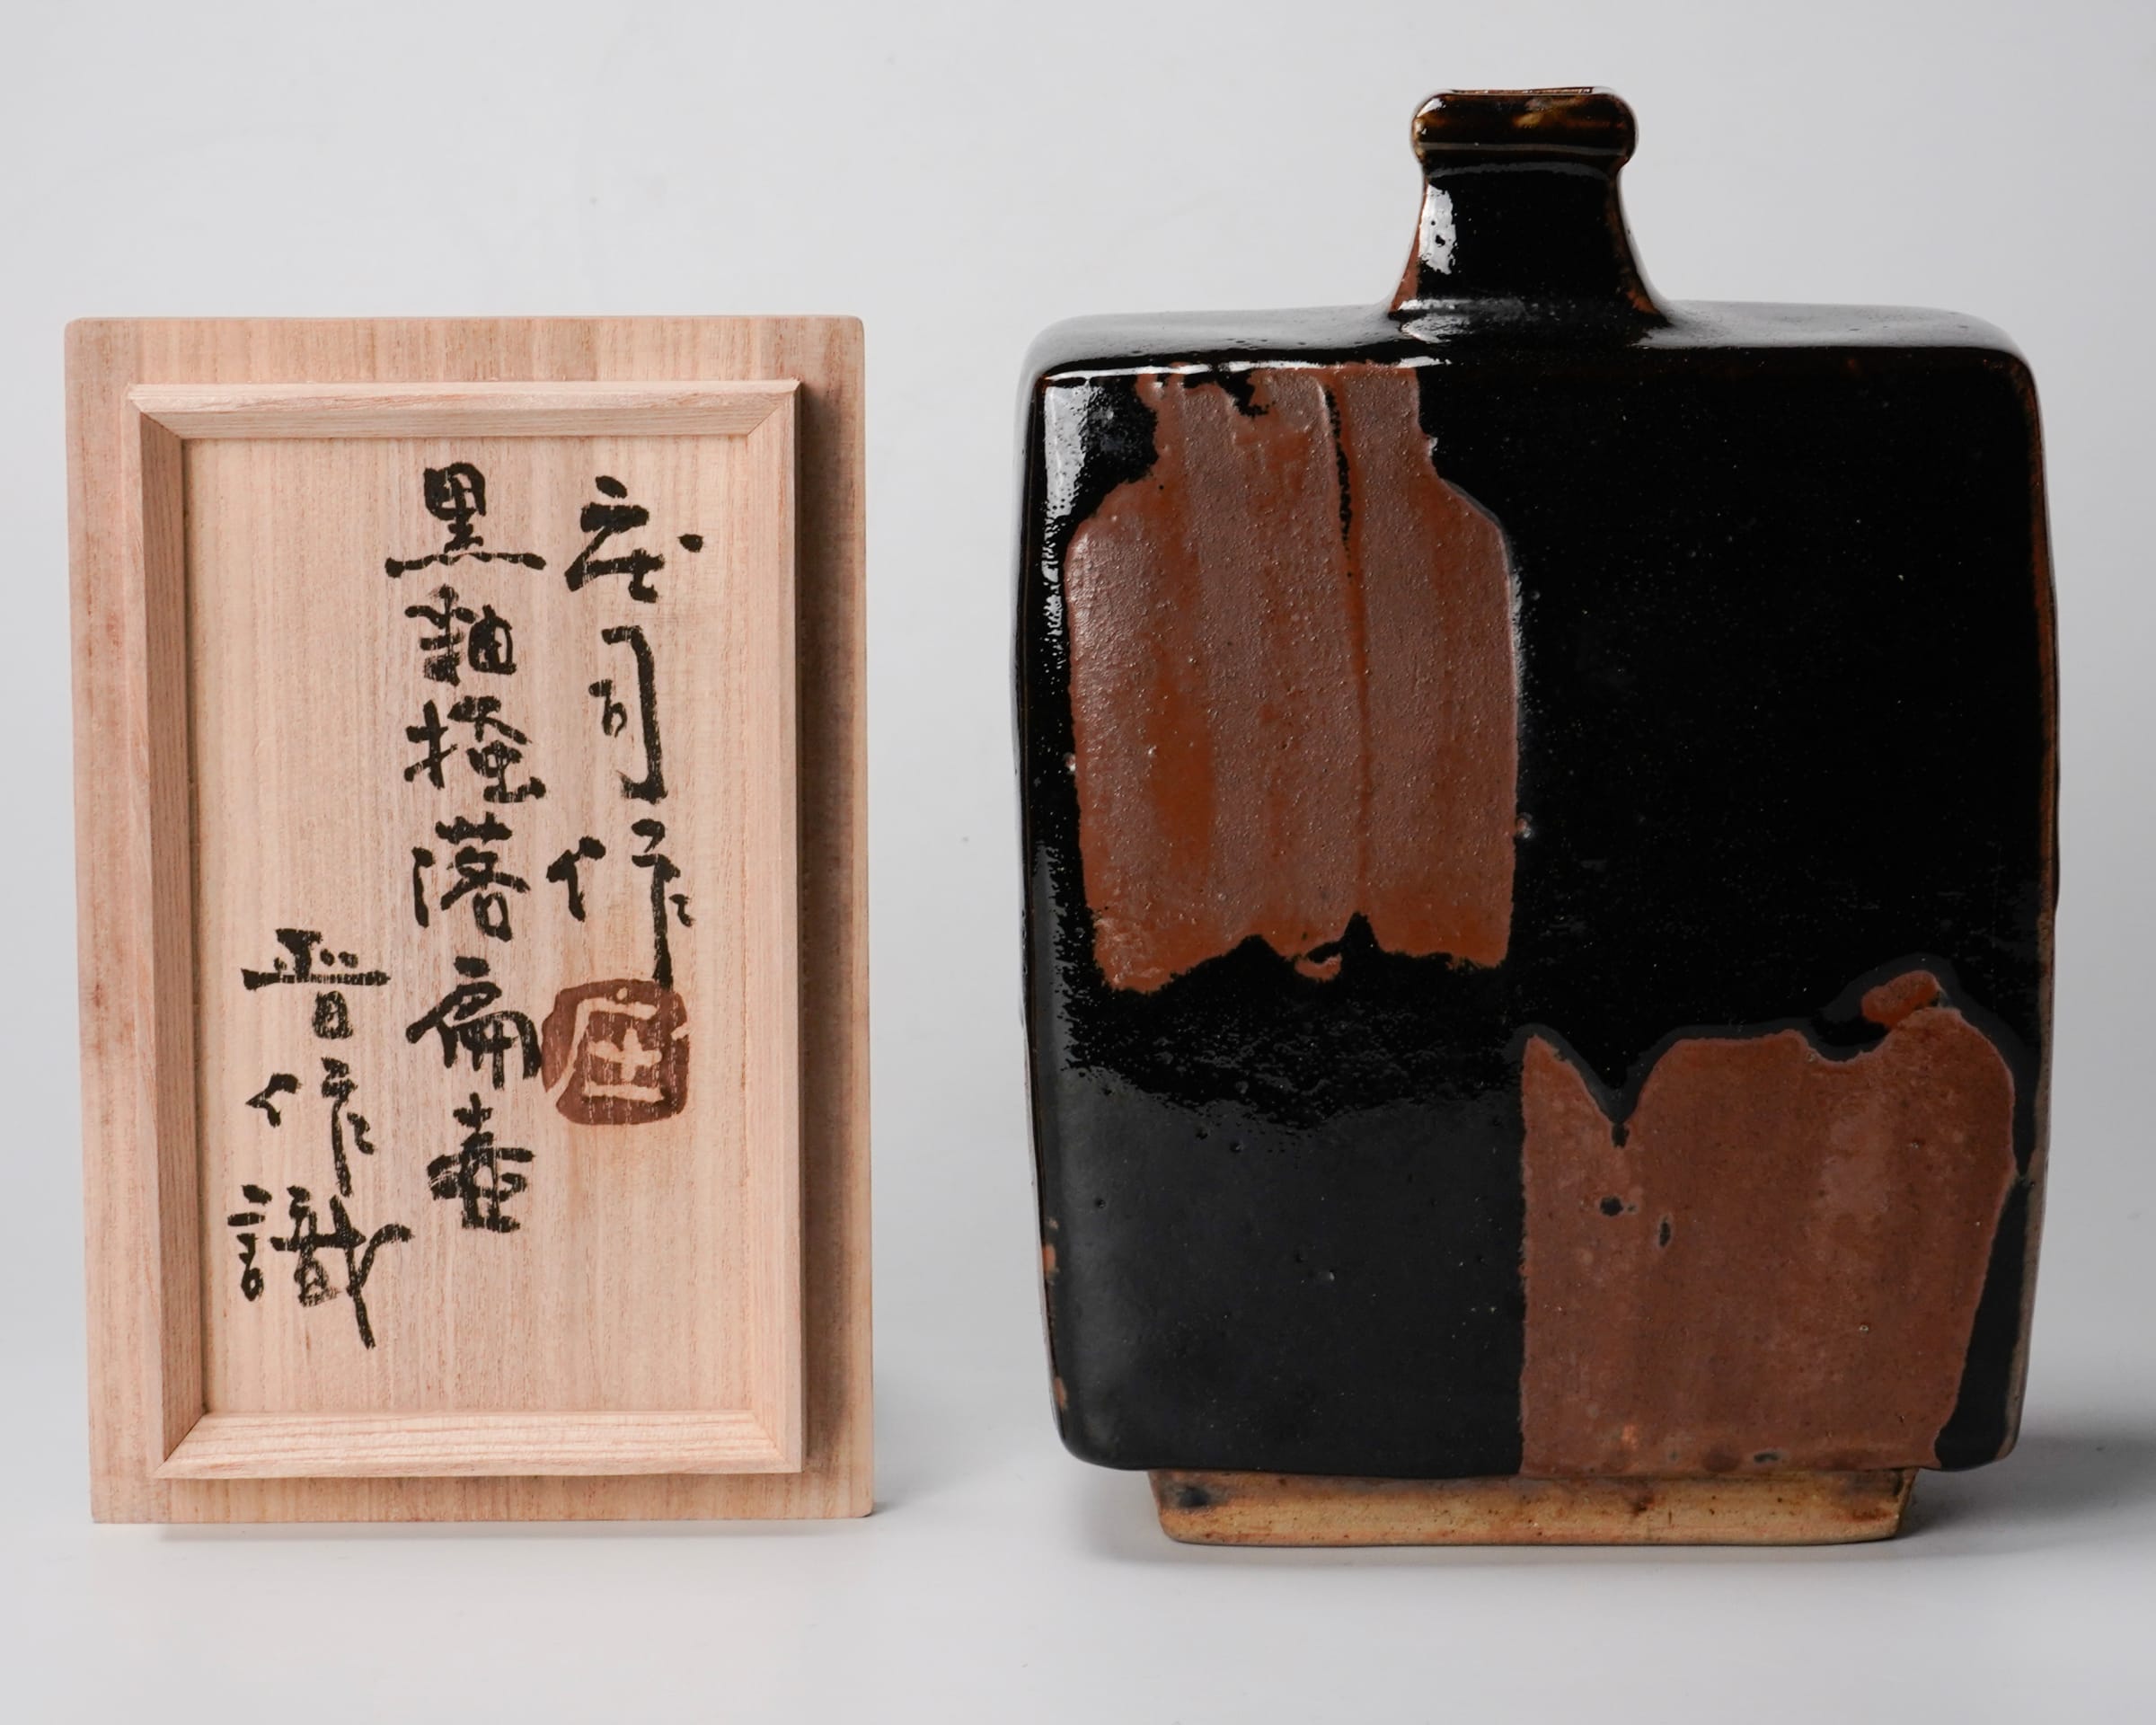 庄司作
黒釉掻落扁壷
晋作識
庄